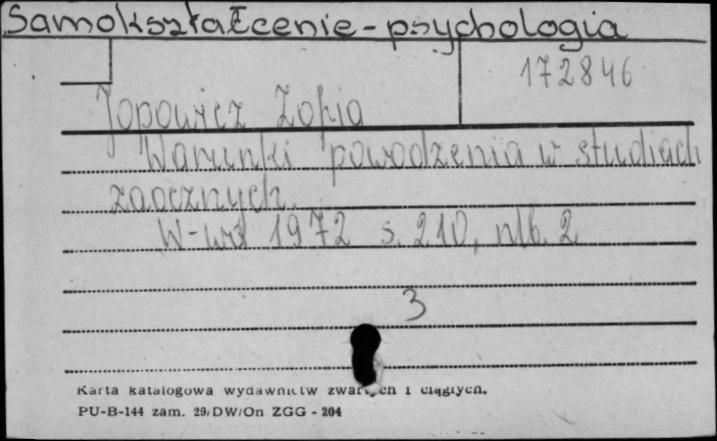 Samokształcenie - psychologia
172846
Jopowicz Zofia
Warunki powodzenia w studiach
zaocznych.
W-wa 1972 s. 210, nlb. 2
3
Karta katalogowa wydawnictw zwartych i ciągłych.
PU-B-144 zam. 29/DW/On ZGG - 204